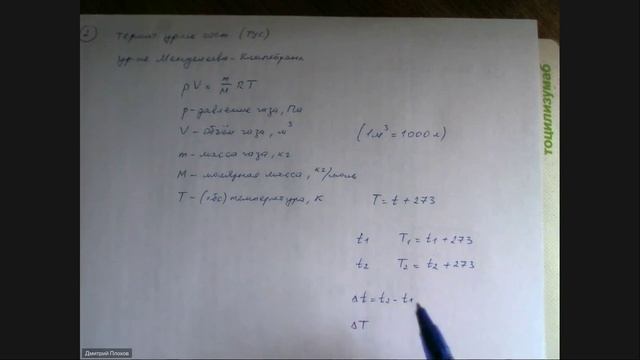 2 термич ур-ие сост (ТУС)
ур-ие Менделеева-Клапейрона
pV = m/M RT
p - давление газа, Па
V - объём газа, м³ (1м³ = 1000 л)
m - масса газа, кг
M - молярная масса, кг/моль
T - (абс) температура, К T = t + 273
t₁ T₁ = t₁ + 273
t₂ T₂ = t₂ + 273
Δt = t₂ - t₁
ΔT
тоцилизумаб
Дмитрий Плохов